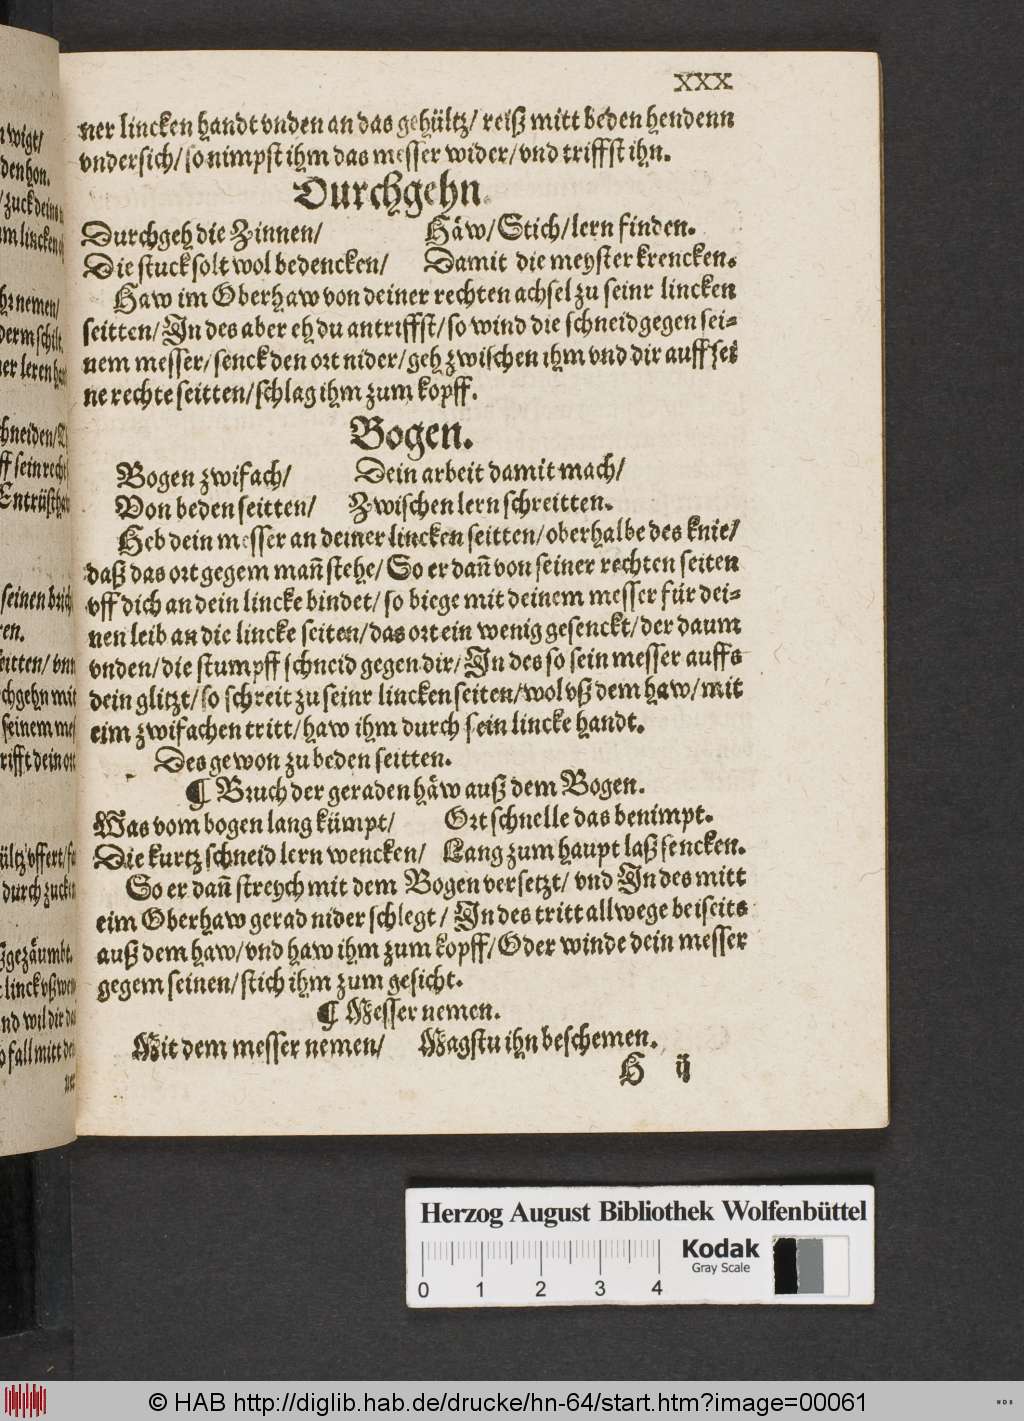 XXX
ner lincken handt vnden an das gehültz/ reiß mitt beden hendenn
vndersich/ so nimpst ihm das messer wider/ vnd triffst ihn.
Durchgehn.
Durchgeh die Zinnen/ Häw/ Stich/ lern finden.
Die stuck solt wol bedencken/ Damit die meyster krencken.
Haw im Oberhaw von deiner rechten achsel zu seinr lincken
seitten/ In des aber eh du antriffst/ so wind die schneid gegen sei-
nem messer/ senck den ort nider/ geh zwischen ihm vnd dir auff sei
ne rechte seitten/ schlag ihm zum kopff.
Bogen.
Bogen zwifach/ Dein arbeit damit mach/
Von beden seitten/ Zwischen lern schreitten.
Heb dein messer an deiner lincken seitten/ oberhalbe des knie/
daß das ort gegem mañ stehe/ So er dañ von seiner rechten seiten
vff dich an dein lincke bindet/ so biege mit deinem messer für dei-
nen leib an die lincke seiten/ das ort ein wenig gesenckt/ der daum
vnden/ die stumpff schneid gegen dir/ In des so sein messer auffs
dein glitzt/ so schreit zu seinr lincken seiten/ wol vß dem haw/ mit
eim zwifachen tritt/ haw ihm durch sein lincke handt.
Des gewon zu beden seitten.
¶ Bruch der geraden häw auß dem Bogen.
Was vom bogen lang kümpt/ Ort schnelle das benimpt.
Die kurtz schneid lern wencken/ Lang zum haupt laß sencken.
So er dañ streych mit dem Bogen versetzt/ vnd In des mitt
eim Oberhaw gerad nider schlegt/ In des tritt allwege beiseits
auß dem haw/ vnd haw ihm zum kopff/ Oder winde dein messer
gegem seinen/ stich ihm zum gesicht.
¶ Messer nemen.
Mit dem messer nemen/ Magstu ihn beschemen.
H ij
Herzog August Bibliothek Wolfenbüttel
Kodak
Gray Scale
0 1 2 3 4
© HAB http://diglib.hab.de/drucke/hn-64/start.htm?image=00061